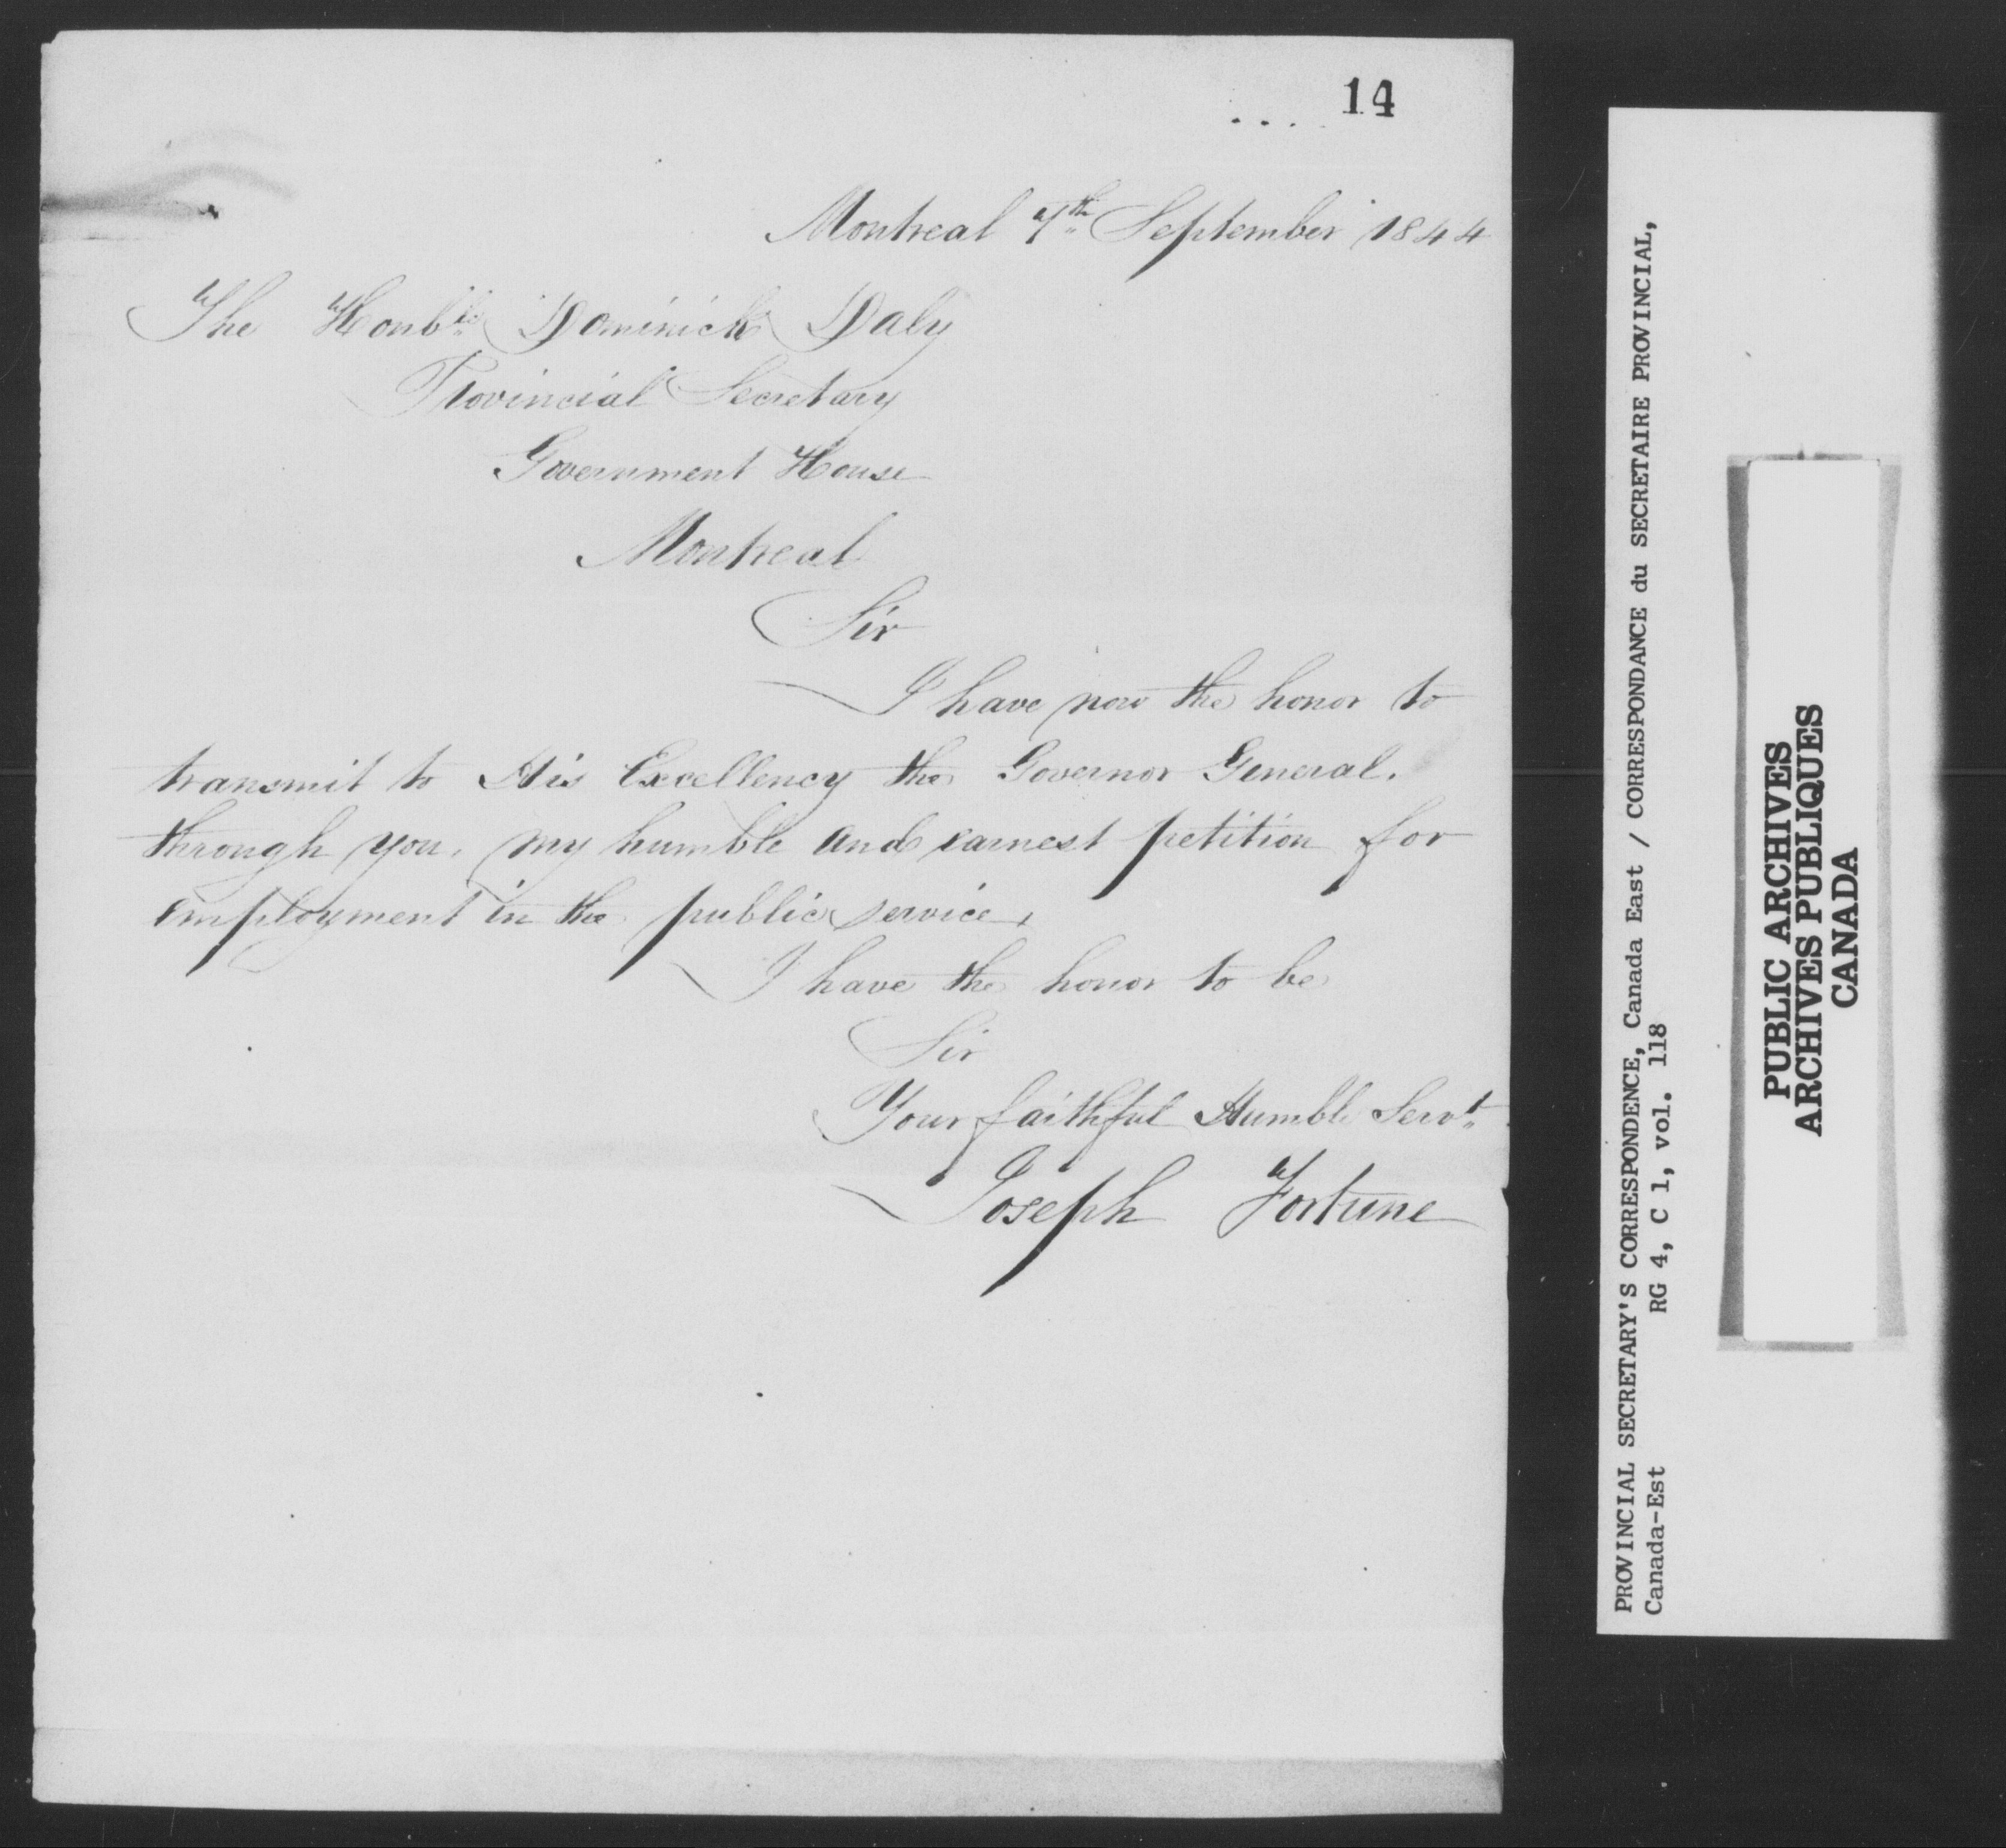 14
Montreal 7th September 1844
The Honble Dominick Daly
Provincial Secretary
Government House
Montreal
Sir
I have now the honor to
transmit to His Excellency the Governor General,
through you, my humble and earnest petition for
employment in the public service,
I have the honor to be
Sir
Your faithful Humble Servt
Joseph Fortune
PROVINCIAL SECRETARY'S CORRESPONDENCE, Canada East / CORRESPONDANCE du SECRETAIRE PROVINCIAL,
Canada-Est RG 4, C 1, vol. 118
PUBLIC ARCHIVES
ARCHIVES PUBLIQUES
CANADA